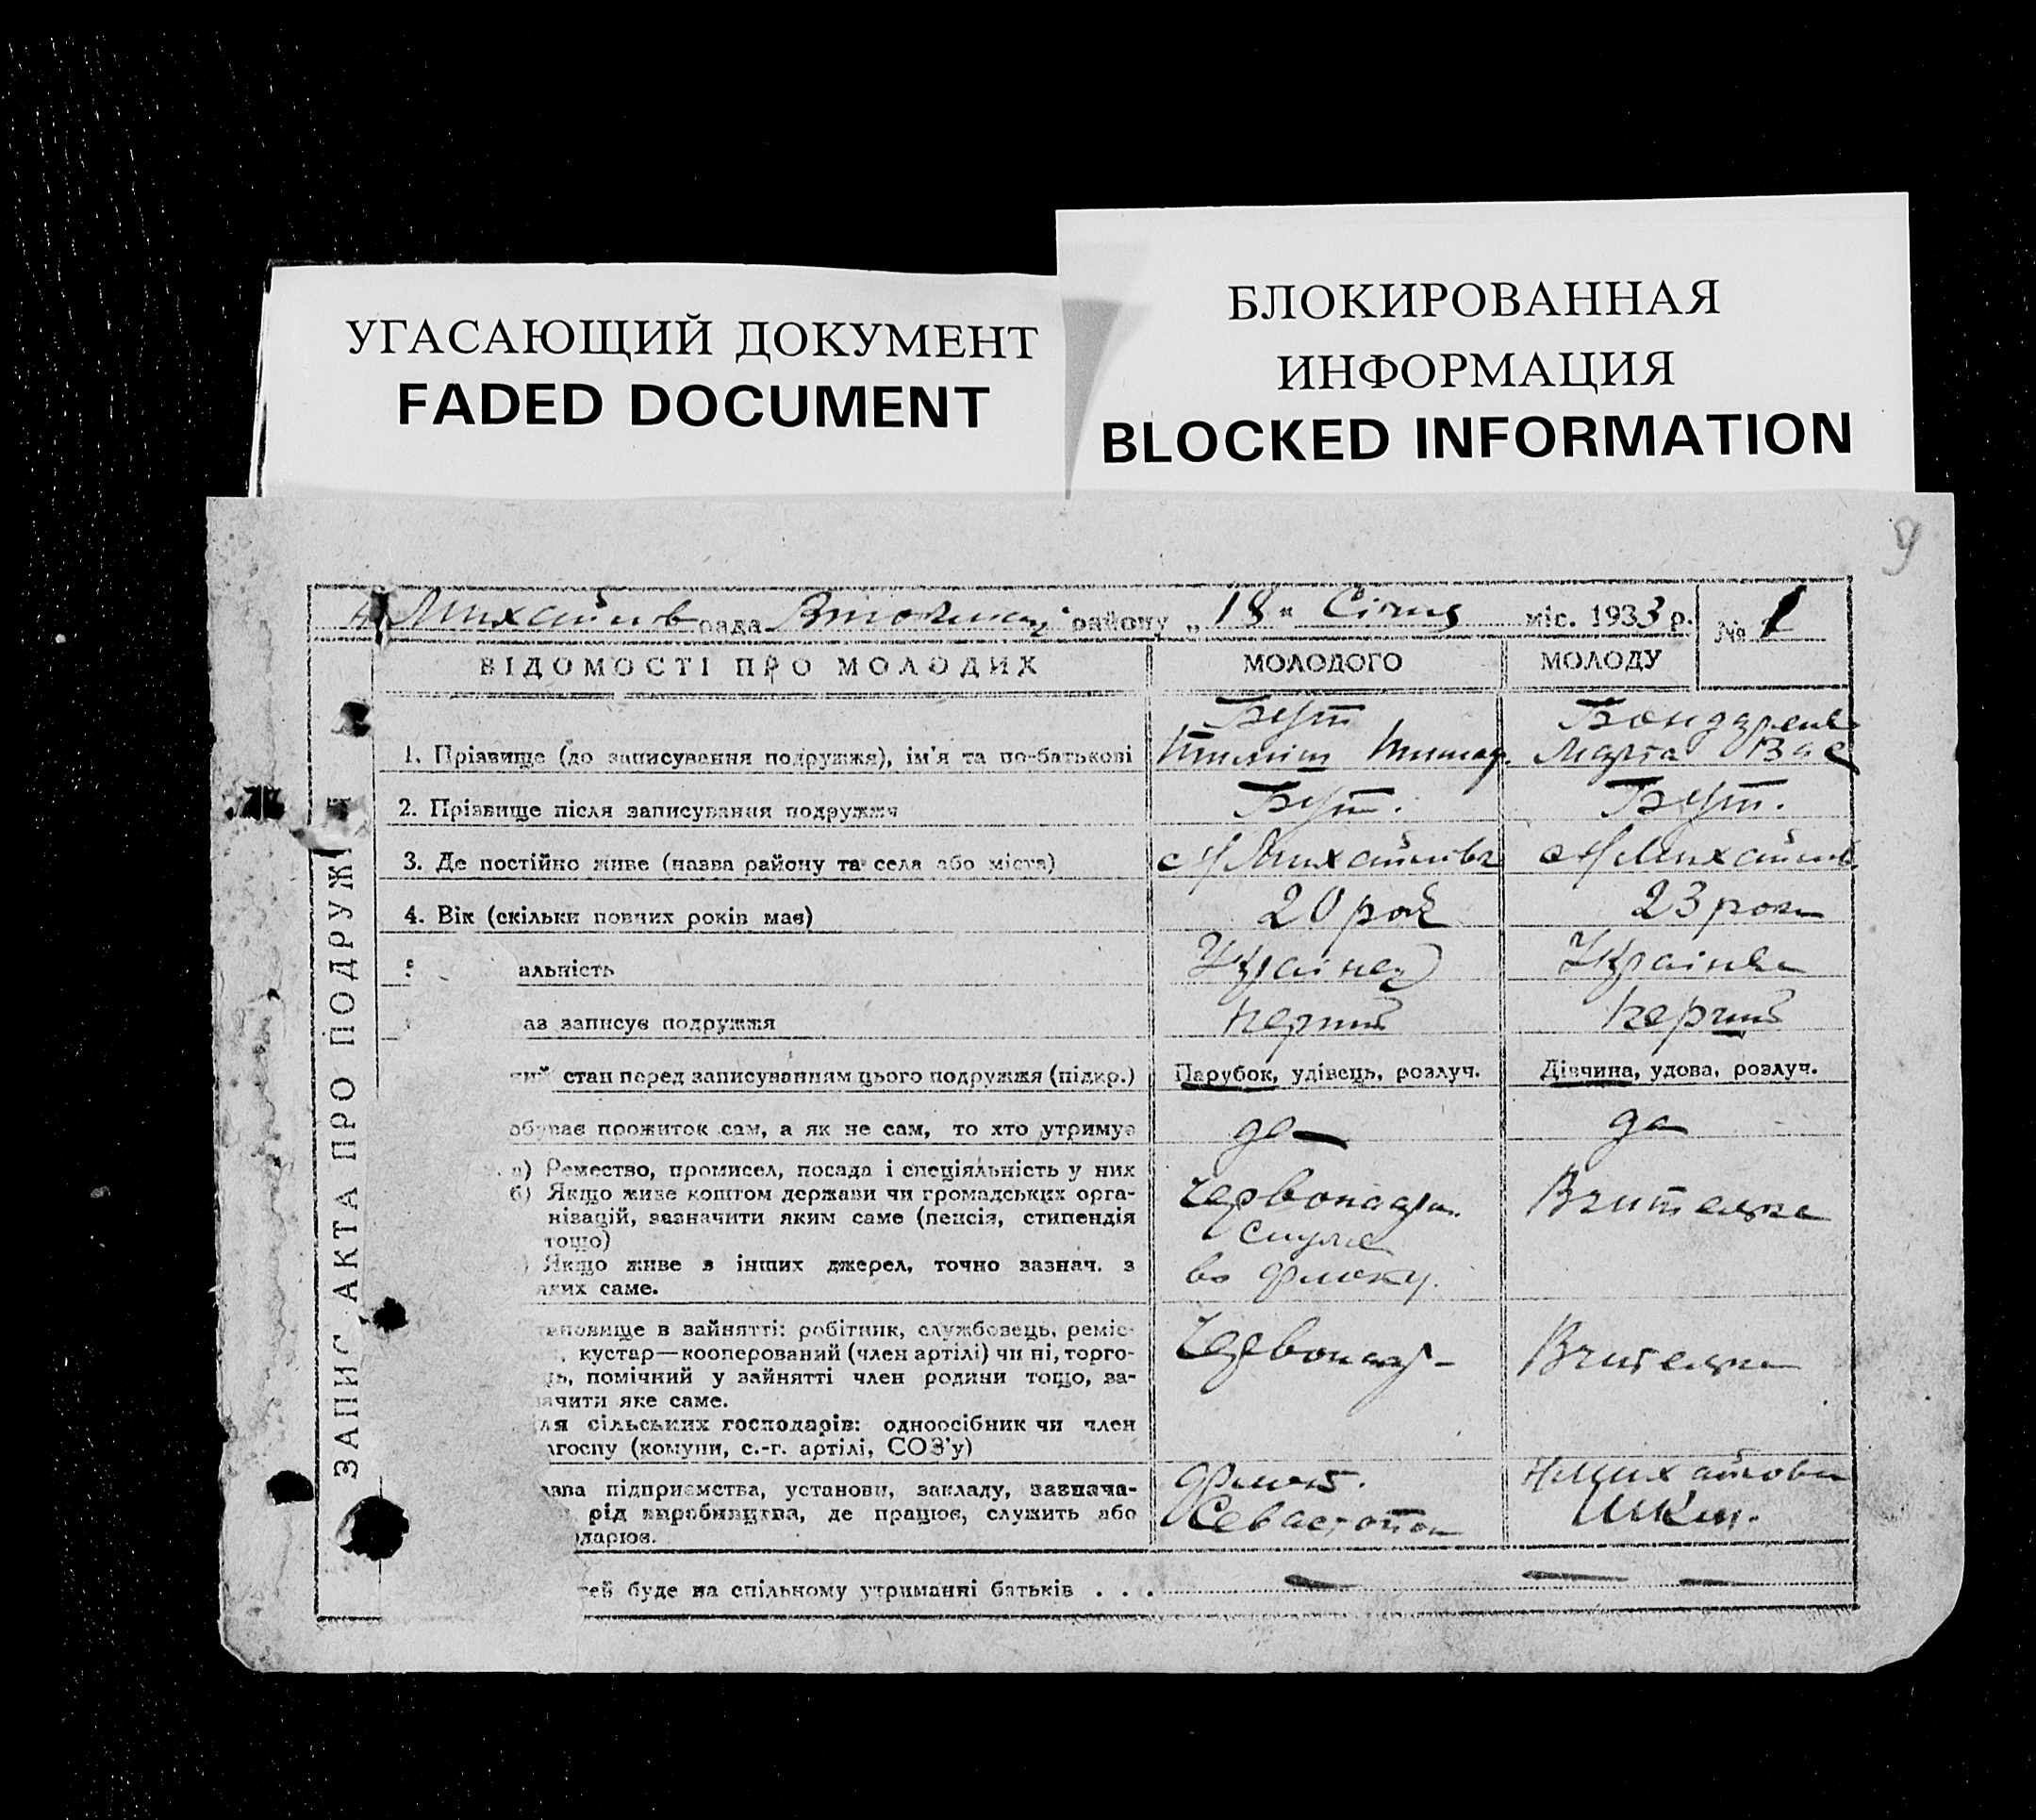 УГАСАЮЩИЙ ДОКУМЕНТ
FADED DOCUMENT
БЛОКИРОВАННАЯ
ИНФОРМАЦИЯ
BLOCKED INFORMATION
9
рада району „18" Січня міс. 1933 р. № 1
ВІДОМОСТІ ПРО МОЛОДИХ МОЛОДОГО МОЛОДУ
ЗАПИС АКТА ПРО ПОДРУЖ
Бут Бондаренк
1. Прізвище (до записування подружжя), ім'я та по-батькові Марта Вас
2. Прізвище після записування подружжя Бут. Бут.
3. Де постійно живе (назва району та села або міста) с Н Михайлівк с Н Михайлів
4. Вік (скільки повних років має) 20 рок 23 роки
5 альність Українец Українка
аз записує подружжя перший перший
ий стан перед записуванням цього подружжя (підкр.) Парубок, удівець, розлуч. Дівчина, удова, розлуч.
обуває прожиток сам, а як не сам, то хто утримує да да
а) Ремество, промисел, посада і спеціяльність у них
б) Якщо живе коштом держави чи громадських орга-
нізацій, зазначити яким саме (пенсія, стипендія
тощо)
) Якщо живе з інших джерел, точно зазнач. з
яких саме.
во флоту.
Вчителька
тановище в зайнятті: робітник, службовець, реміс-
, кустар—кооперований (член артілі) чи ні, торго-
ць, помічний у зайнятті член родини тощо, за-
начити яке саме.
ля сільських господарів: одноосібник чи член
лгоспу (комуни, с.-г. артілі, СОЗ'у)
Вчителька
азва підприємства, установи, закладу, зазнача-
рід виробництва, де працює, служить або
дарює.
Флот.
Севастопол
Н Михайловка
Шкл.
тей буде на спільному утриманні батьків . . . — — —